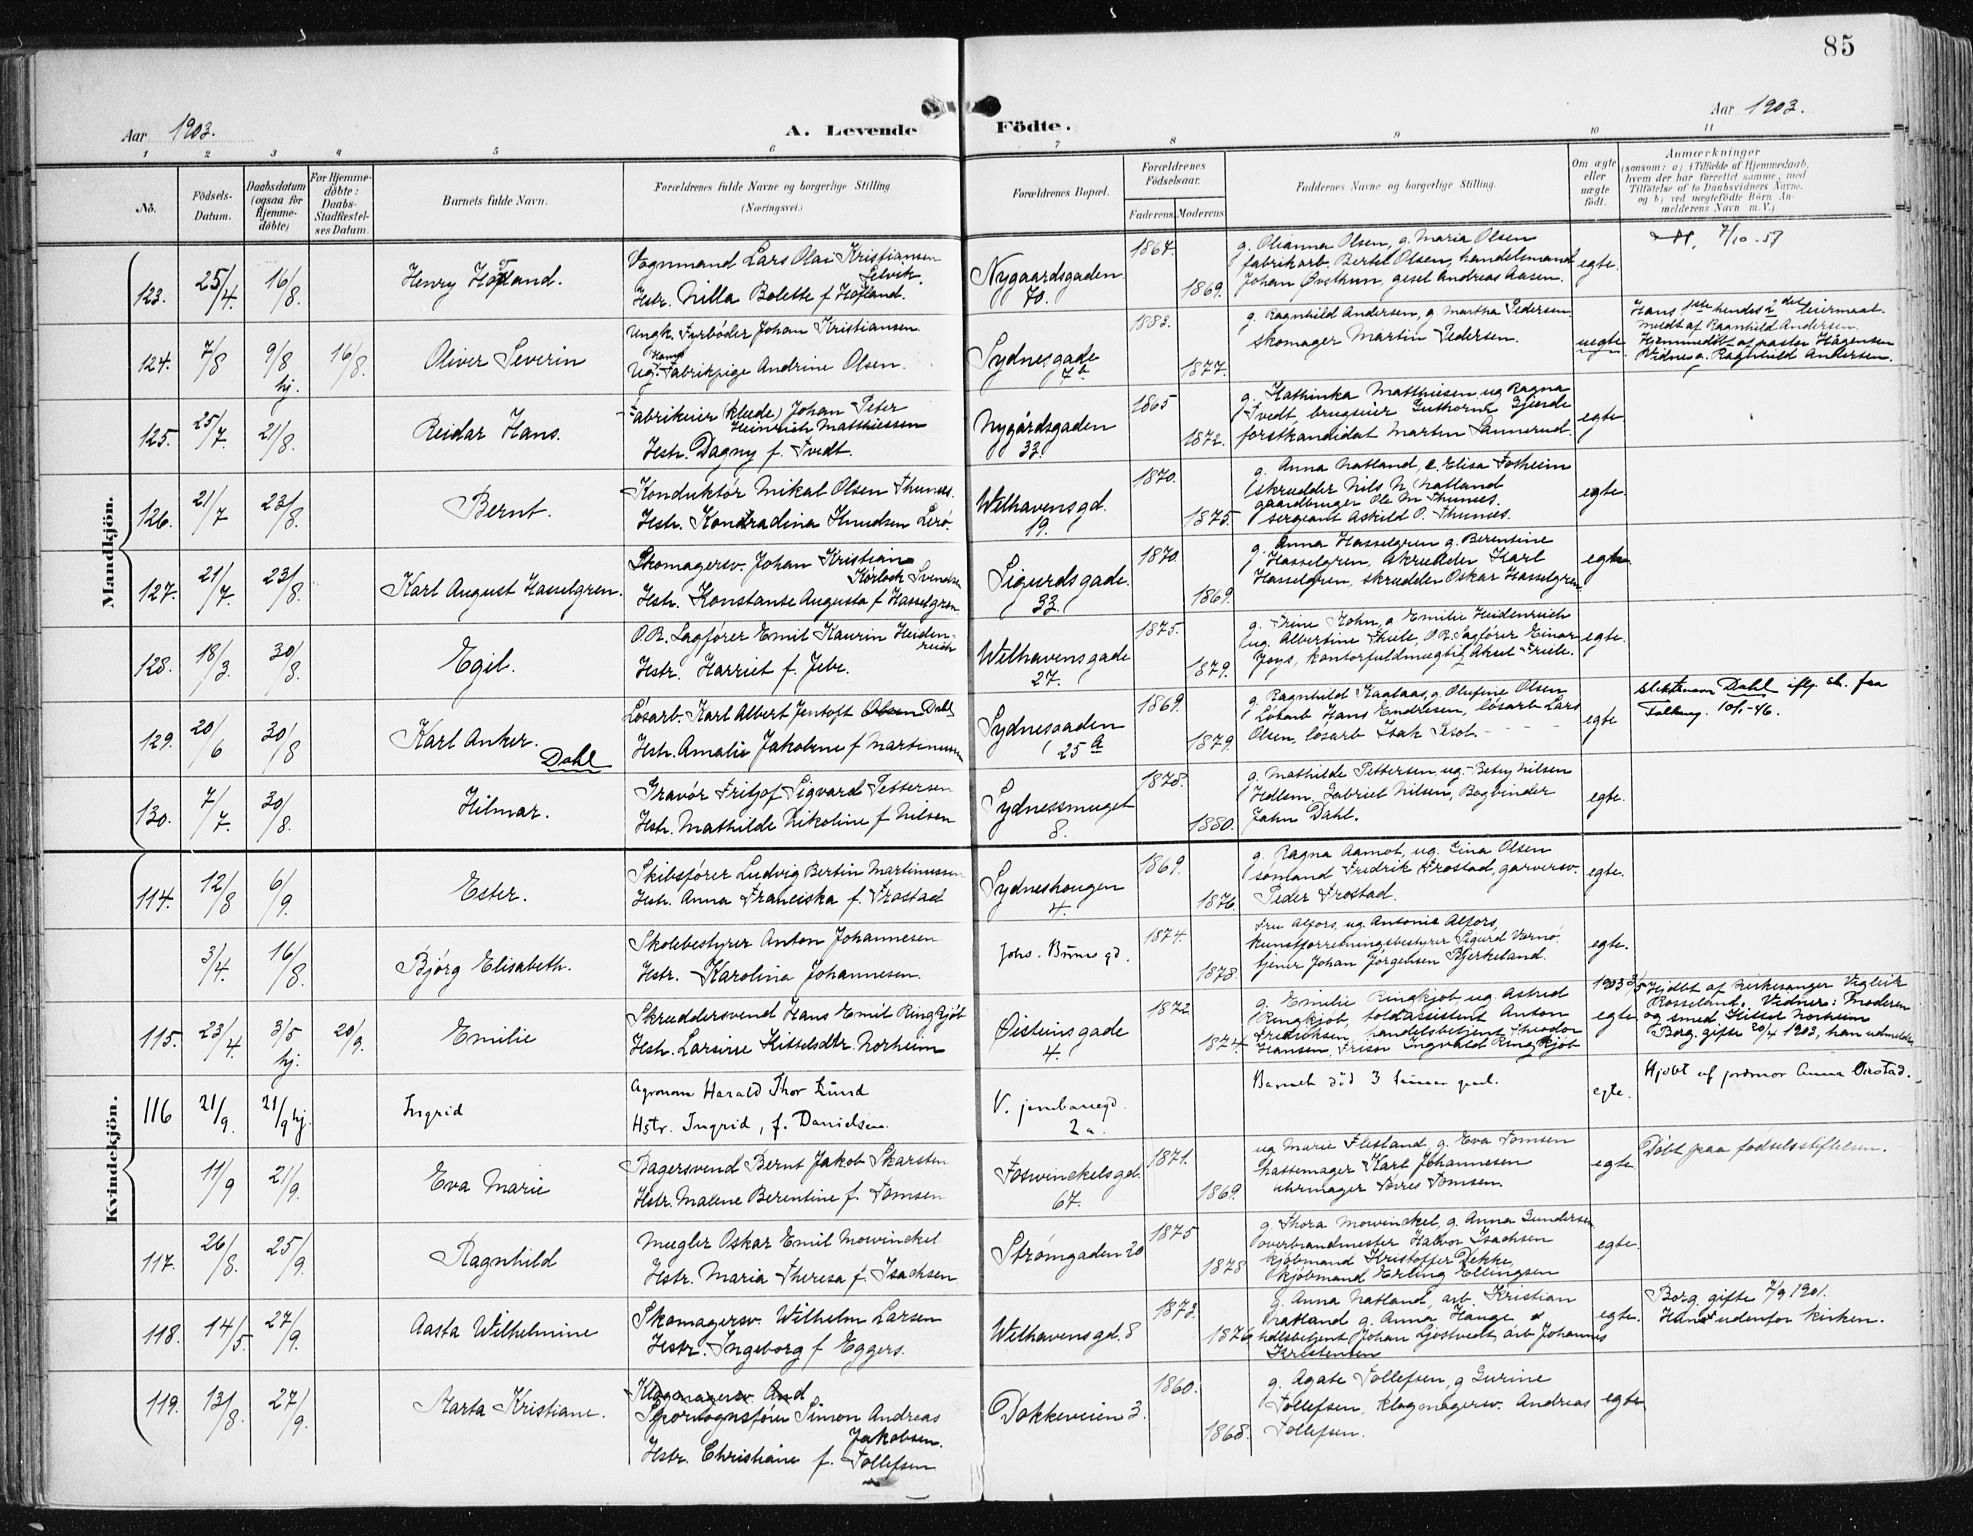 85
Aar 1903.
A. Levende Födte.
Aar 1903.
1 2 3 4 5 6 7 8 9 10 11
No.
Födsels-Datum.
Daabsdatum (ogsaa for Hjemme-döbte)
For Hjemme-döbte: Daabs-Stadfæstel-ses Datum.
Barnets fulde Navn.
Forældrenes fulde Navne og borgerlige Stilling.
(Næringsvei.)
Forældrenes Bopæl.
Forældrenes Födselsaar.
Faderens. Moderens.
Faddernes Navne og borgerlige Stilling.
Om ægte eller uægte födt.
Anmærkninger
(saasom: a) i Tilfælde af Hjemmedaab, hvem der har forrettet samme, med Tilföielse af to Daabsvidners Navne, og b) ved uægtefödte Börn Anmelderens Navn m. V.)
Mandkjön.
123. 25/4. 16/8. Henry Hofland.
Vognmand Lars Olai Kristiansen Selvik.
Hstr. Nilla Bolette f Hofland.
Nygaardsgaden 70.
1864. 1869.
g. Olianna Olsen, g. Maria Olsen
fabrikarb. Bertel Olsen, handelsmand
Johan Øvsthun, gesel Andreas Aasen.
egte.
7/10-57
124. 7/8 9/8 hj. 16/8. Oliver Severin
Ungk. Fyrbøder Johan Kristiansen
Ug. Fabrikpige Andrine Olsen.
Sydnesgade 7b
1883. 1877.
g. Ragnhild Andersen, g Martha Pedersen
skomager Martin Pedersen.
uegte
Hans 1ste hendes 2det leiermaal.
meldt af Ragnhild Andersen.
Hjemmedøbt af pastor Hågensen
Vidne g. Ragnhild Andersen.
125. 25/7 21/8. Reidar Hans.
Fabrikeier (klæde) Johan Peter
Heinrich Matthiessen
Hstr. Dagny f. Tvedt.
Nygårdsgaden 33.
1865 1872.
g. Kathinka Matthiesen ug Ragna
Tvedt, brugseier Guthorm Gjerde
forstkandidat Martin Sannerud.
egte
126. 21/7 23/8. Bernt.
Konduktör Mikal Olsen Thunes.
Hstr. Konradina Knudsen Lerø.
Welhavensgd. 19.
1870. 1875.
g. Anna Natland, e. Elisa Fosheim
skrædder Nils N. Natland
gaardbruger Ole M Thunes.
sergeant Askild O. Thunes.
egte
127. 21/7. 23/8. Karl August Hasselgren.
Skomagersv. Johan Kristian
Kørloch Svendsen
Hstr. Konstanse Augusta f Hasselgren
Sigurdsgade. 33.
1870. 1869.
g. Anna Hasselgren g. Berentine
Hasselgren, skrædder Karl
Hasselgren, skrædder Oskar Hasselgren
egte
128. 18/3. 30/8. Egil.
O.R. Sagfører Emil Kaurin Heidenreich
Hstr. Harriet f. Jebe.
Welhavensgade 27.
1875. 1879.
g. Trine Kohn, g Emilie Heidenreich
ug. Albertine Friele, O.R. Sagfører Einar
Joys, kontorfuldmægtig Aksel Friele.
egte.
129. 20/6 30/8 Karl Anker. Dahl
Løsarb. Karl Albert Jentoft Olsen Dahl
Hstr. Amalie Jakobine f Martinussen
Sydnesgaden 25 a
1869. 1879.
g. Ragnhild Kaalaas, g. Olufine Olsen
Løsarb Hans Endresen, løsarb Lars
Olsen, løsarb Isak
egte
slektsnavn Dahl iflg. faa
Folkereg. 10/1-46.
130. 7/7. 30/8. Hilmar.
Gravör Fritjof Sigvard Pettersen
Hstr. Mathilde Nikoline f Nilsen
Sydnessmuget 8.
1878. 1880.
g. Mathilde Pettersen, ug. Betsy Nilsen
Gabriel Nilsen, Bogbinder
John Dahl.
egte.
Kvindekjön.
114. 12/8 6/9. Ester.
Skibsfører Ludvig Bertin Martinussen
Hstr. Anna Franciska f. Frostad
Sydneshougen 4.
1869. 1876.
g. Ragna Aamot, ug. Gina Olsen
sømand Fredrik Frostad, garversv.
Peder Frostad.
egte.
3/4. 16/8. Bjørg Elisabeth.
Skolebestyrer Anton Johannesen
Hstr. Karolina Johannesen.
Johs. Bruns gd.
1874. 1878.
Fru Alfors, ug. Antonie Alfors,
kunstforretningsbestyrer Sigurd Værnø.
tjener Johan Jørgensen Bjerkeland.
egte.
115. 23/4. 3/5 hj. 20/9. Emilie
Skræddersvend Hans Emil Ringkjøb
Hstr. Larsine Kittelsdtr. Norheim
Øisteinsgade 4.
1872 1874.
g. Emilie Ringkjøb, ug. Astrid
Ringkjøb, toldassistent Anton
Fredriksen, handelsbetjent Theodor
Hansen, Frisør Ingvald Ringkjøb
egte
1903 3/5 Hjdbt af kirkesanger Viglik
Rosseland. Vidner: Moderen
og smed Kittel Norheim
Borg. gifte 20/4 1903, han udmeldt
116 21/9. 21/9 hj. Ingrid
Agronom Harald Thor Lund
Hstr. Ingrid, f. Danielsen.
V. jernbanegd. 2a.
Barnet død 3 timer gml.
egte.
Hjdbt af jordmor Anna Ørstad.
11/9 21/9. Eva Marie
Bagersvend Bernt Jakob Skarsten
Hstr. Malene Berentine f. Tomsen
Foswinckelsgd. 67.
1871. 1869.
ug Marie Flesland, g. Eva Tomsen
hattemager Karl Johannesen
uhrmager Tomsen.
egte
Døbt paa fødselsstiftelsen.
117. 26/8. 25/9. Ragnhild
Mægler Oskar Emil Mowinckel
Hstr. Maria Theresa f. Isachsen
Strømgaden 20
1875 1878
g. Thora Mowinckel, g. Anna Gundersen
overbrandmester Halvor Isachsen
kjøbmand Kristoffer Dekke,
kjøbmand Erling Ellingsen
egte.
118. 14/5. 27/9. Aasta Wilhelmine
Skomagersv. Wilhelm Larsen
Hstr. Ingeborg f Eggers.
Welhavensgd. 8
1873. 1876
g. Anna Natland, arb. Kristian
Natland g. Anna Hauge
hdlsbetjent Johan Ljostvedt, arb Johannes
Kristensen
egte.
Borg. gifte 7/9 1901.
Han udenfor kirken.
119. 13/8. 27/9. Marta Kristiane.
Klogmagersv. And
Sporvognsfører Simon Andreas
Jakobsen.
Hstr. Christiane f. Tollefsen
Dokkeveien 3.
1860. 1868.
g. Agate Tollefsen, g Gurine
Tollefsen, klogmagersv. Andreas
Tollefsen.
egte